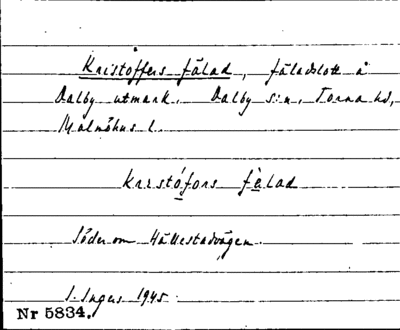 Kristoffers fälad, fäladslott å
Dalby utmark. Dalby s:n, Torna hd,
Malmöhus l.
krrstófors fèlad
Söder om Hällestadvägen.
I. Ingers 1945.
Nr 5834.